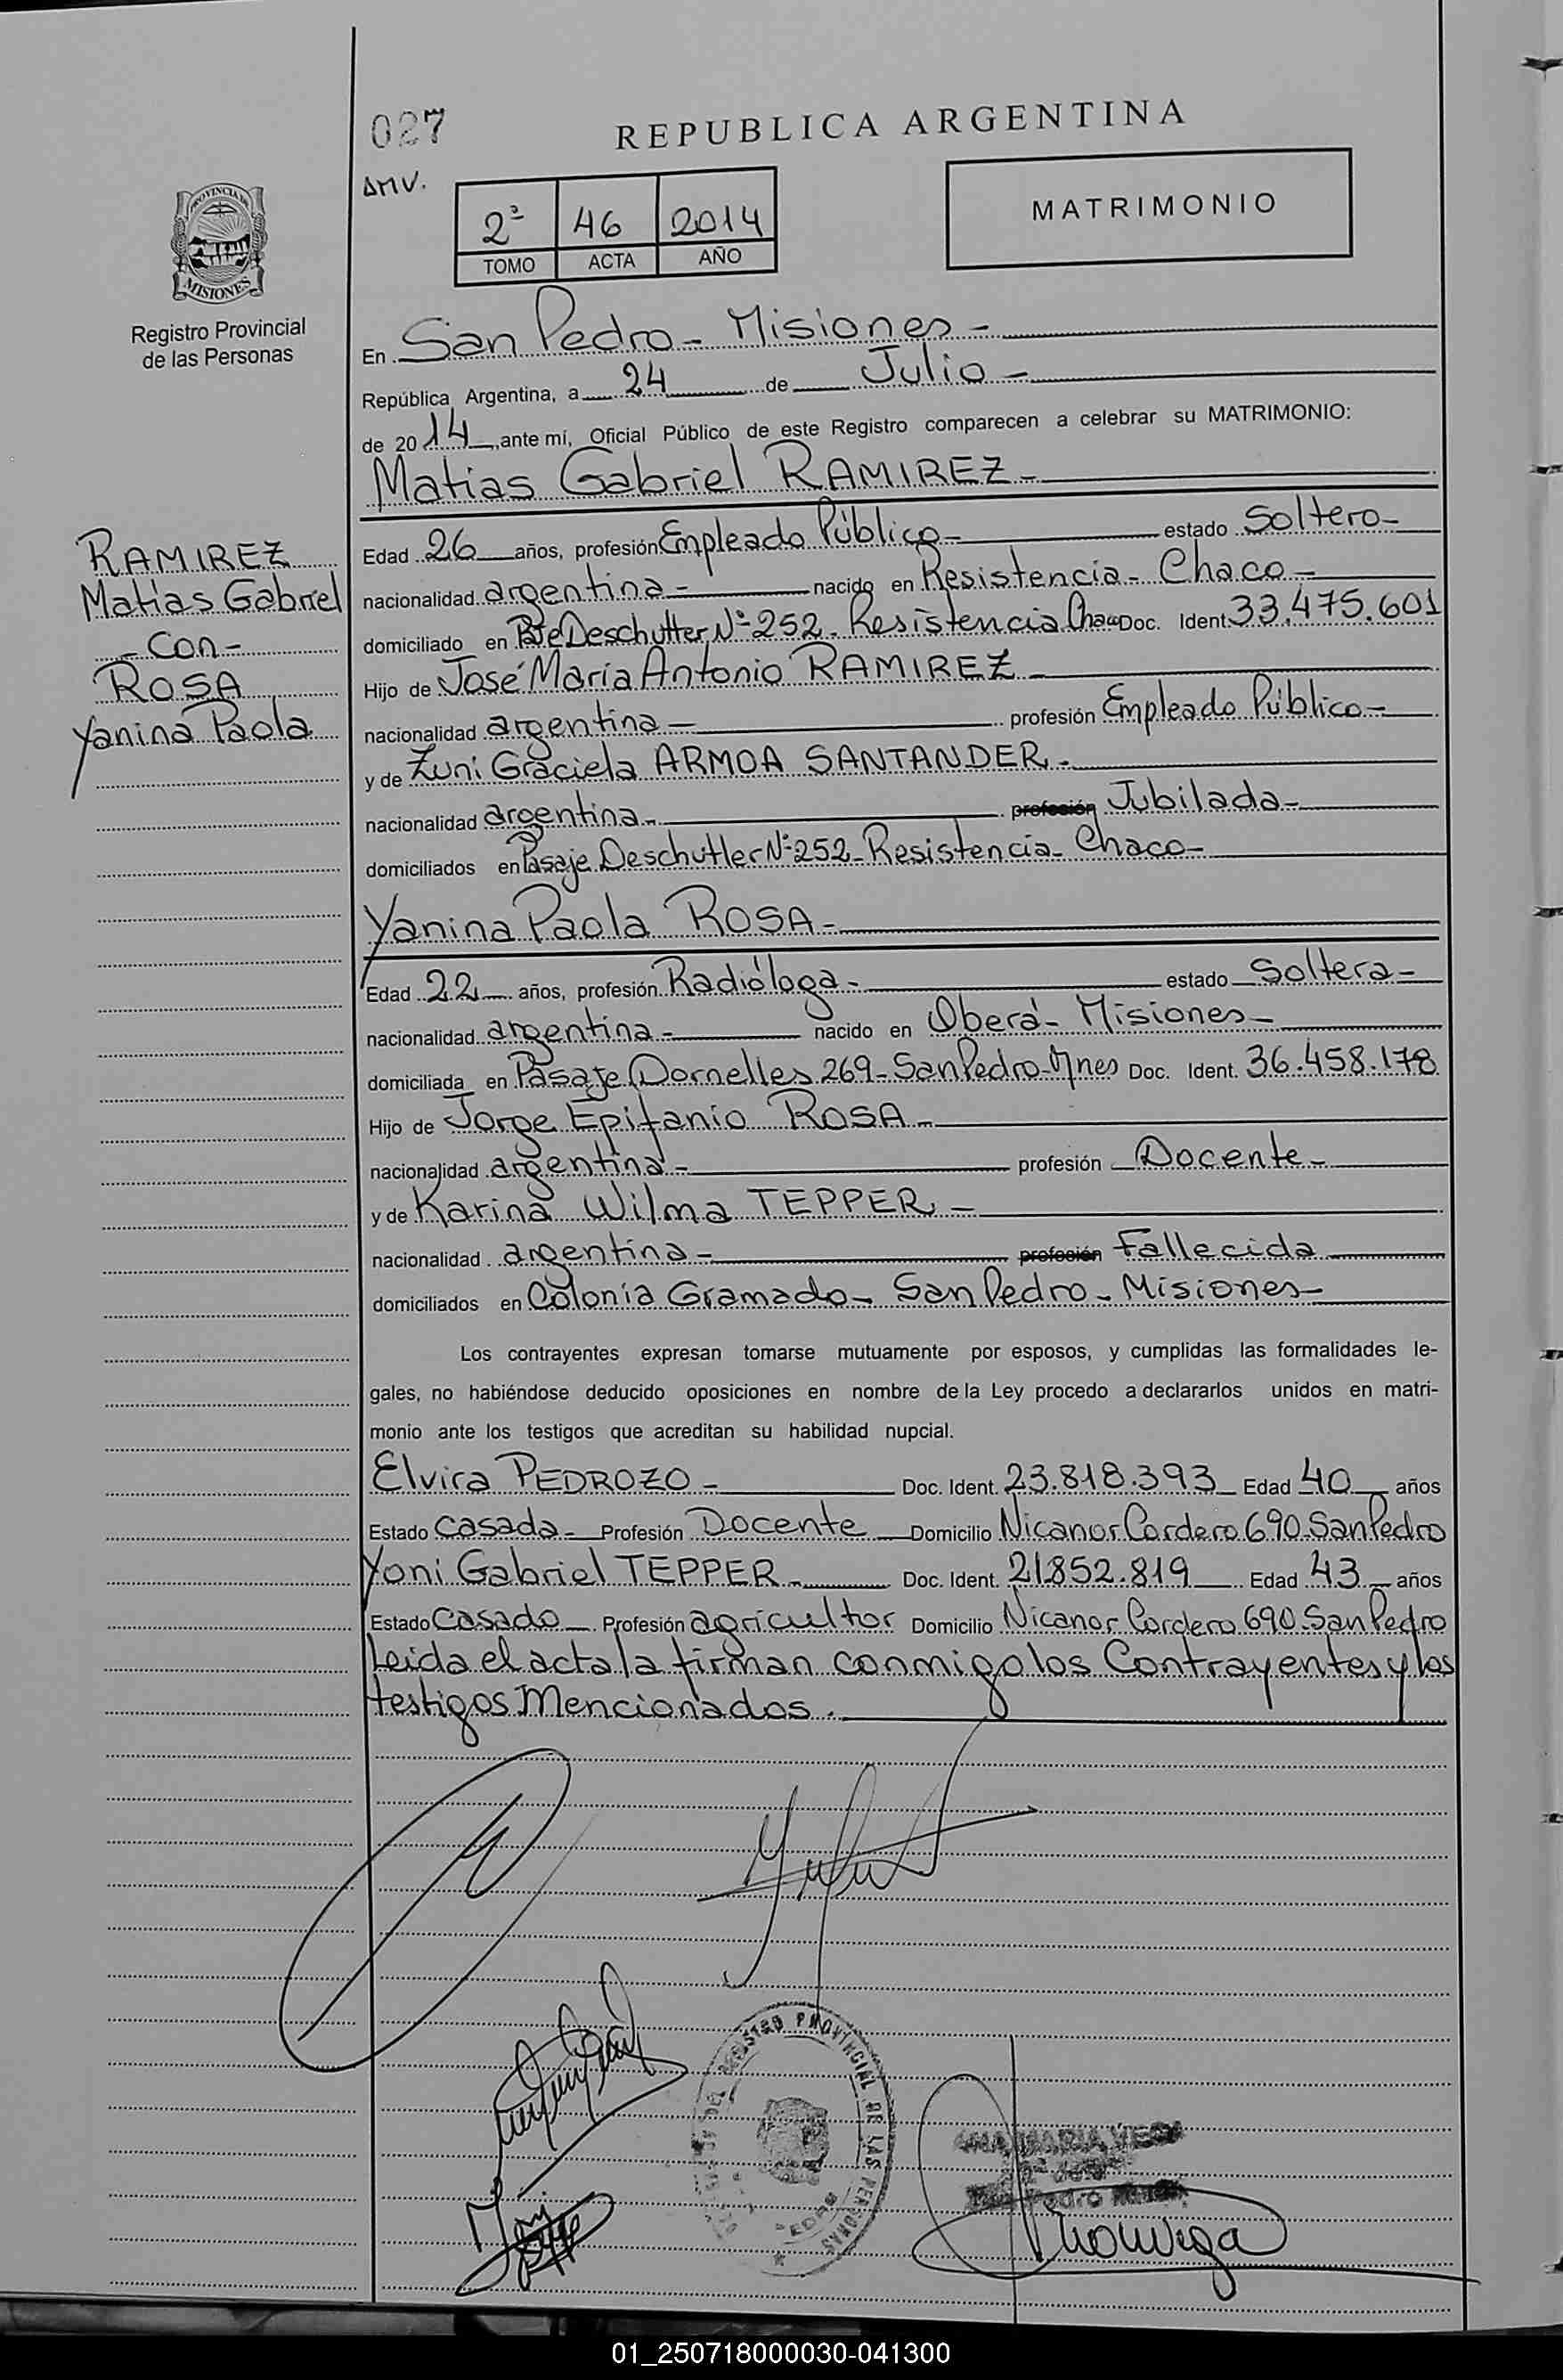 027
REPUBLICA ARGENTINA
AMV.
2ª 46 2014
TOMO ACTA AÑO
MATRIMONIO
PROVINCIA DE
MISIONES
Registro Provincial
de las Personas
En San Pedro - Misiones -
República Argentina, a 24 de Julio -
de 2014, ante mí, Oficial Público de este Registro comparecen a celebrar su MATRIMONIO:
Matias Gabriel RAMIREZ -
RAMIREZ
Matias Gabriel
- Con -
ROSA
Yanina Paola
Edad 26 años, profesión Empleado Público - estado Soltero -
nacionalidad argentina - nacido en Resistencia - Chaco -
domiciliado en Pje Deschutter Nº 252. Resistencia Chaco Doc. Ident 33.475.601
Hijo de José María Antonio RAMIREZ -
nacionalidad argentina - profesión Empleado Público -
y de Zuni Graciela ARMOA SANTANDER -
nacionalidad argentina - profesión Jubilada -
domiciliados en Pasaje Deschutter Nº 252 - Resistencia - Chaco -
Yanina Paola ROSA -
Edad 22 años, profesión Radióloga - estado Soltera -
nacionalidad argentina - nacido en Oberá - Misiones -
domiciliada en Pasaje Dornelles 269 - San Pedro - Mnes Doc. Ident. 36.458.178
Hijo de Jorge Epifanio ROSA -
nacionalidad argentina - profesión Docente -
y de Karina Wilma TEPPER -
nacionalidad argentina - profesión Fallecida
domiciliados en Colonia Gramado - San Pedro - Misiones -
Los contrayentes expresan tomarse mutuamente por esposos, y cumplidas las formalidades le-
gales, no habiéndose deducido oposiciones en nombre de la Ley procedo a declararlos unidos en matri-
monio ante los testigos que acreditan su habilidad nupcial.
Elvira PEDROZO - Doc. Ident. 23.818.393 Edad 40 años
Estado Casada - Profesión Docente Domicilio Nicanor Cordero 690 - San Pedro
Yoni Gabriel TEPPER - Doc. Ident. 21852.819 Edad 43 años
Estado Casado Profesión agricultor Domicilio Nicanor Cordero 690 - San Pedro
Leida el acta la firman conmigo los Contrayentes y los
testigos Mencionados.
REGISTRO PROVINCIAL DE LAS PERSONAS
ANA MARIA VEGA
01_250718000030-041300